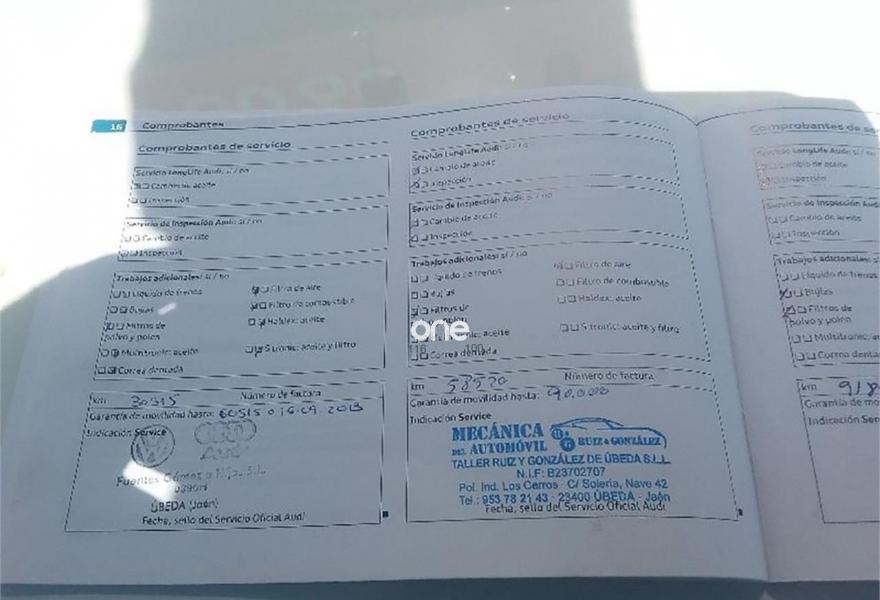 16 Comprobantes
Comprobantes de servicio
Servicio LongLife Audi: sí / no
Cambio de aceite
Inspección
Servicio de Inspección Audi: sí / no
Cambio de aceite
Inspección
Trabajos adicionales: sí / no
Líquido de frenos
Filtro de aire
Bujías
Filtro de combustible
Filtros de
polvo y polen
Haldex: aceite
Multitronic: aceite
S tronic: aceite y filtro
Correa dentada
km 30515 Número de factura
Garantía de movilidad hasta: 60515 o 16.09.2013
Indicación Service
Audi
Fuentes Gómez e Hijos S.L.
ÚBEDA (Jaén)
Fecha, sello del Servicio Oficial Audi
Comprobantes de servicio
Servicio LongLife Audi: sí / no
Cambio de aceite
Inspección
Servicio de Inspección Audi: sí / no
Cambio de aceite
Inspección
Trabajos adicionales: sí / no
Líquido de frenos
Filtro de aire
Bujías
Filtro de combustible
Filtros de
Haldex: aceite
one
aceite
S tronic: aceite y filtro
116 100
Correa dentada
km 58920 Número de factura
Garantía de movilidad hasta: 90.000
Indicación Service
MECÁNICA
DEL AUTOMÓVIL
RUIZ & GONZÁLEZ
TALLER RUIZ Y GONZÁLEZ DE ÚBEDA S.L.L.
N.I.F: B23702707
Pol. Ind. Los Cerros - C/ Solería, Nave 42
Tel.: 953 78 21 43 - 23400 ÚBEDA - Jaén
Fecha, sello del Servicio Oficial Audi
Comprobantes de se
Servicio LongLife Audi: sí / no
Cambio de aceite
Inspección
Servicio de Inspección Audi: sí / no
Cambio de aceite
Inspección
Trabajos adicionales: s
Líquido de frenos
Bujías
Filtros de
polvo y polen
Multitronic: ac
Correa denta
km 918
Garantía de mo
Indicación Ser